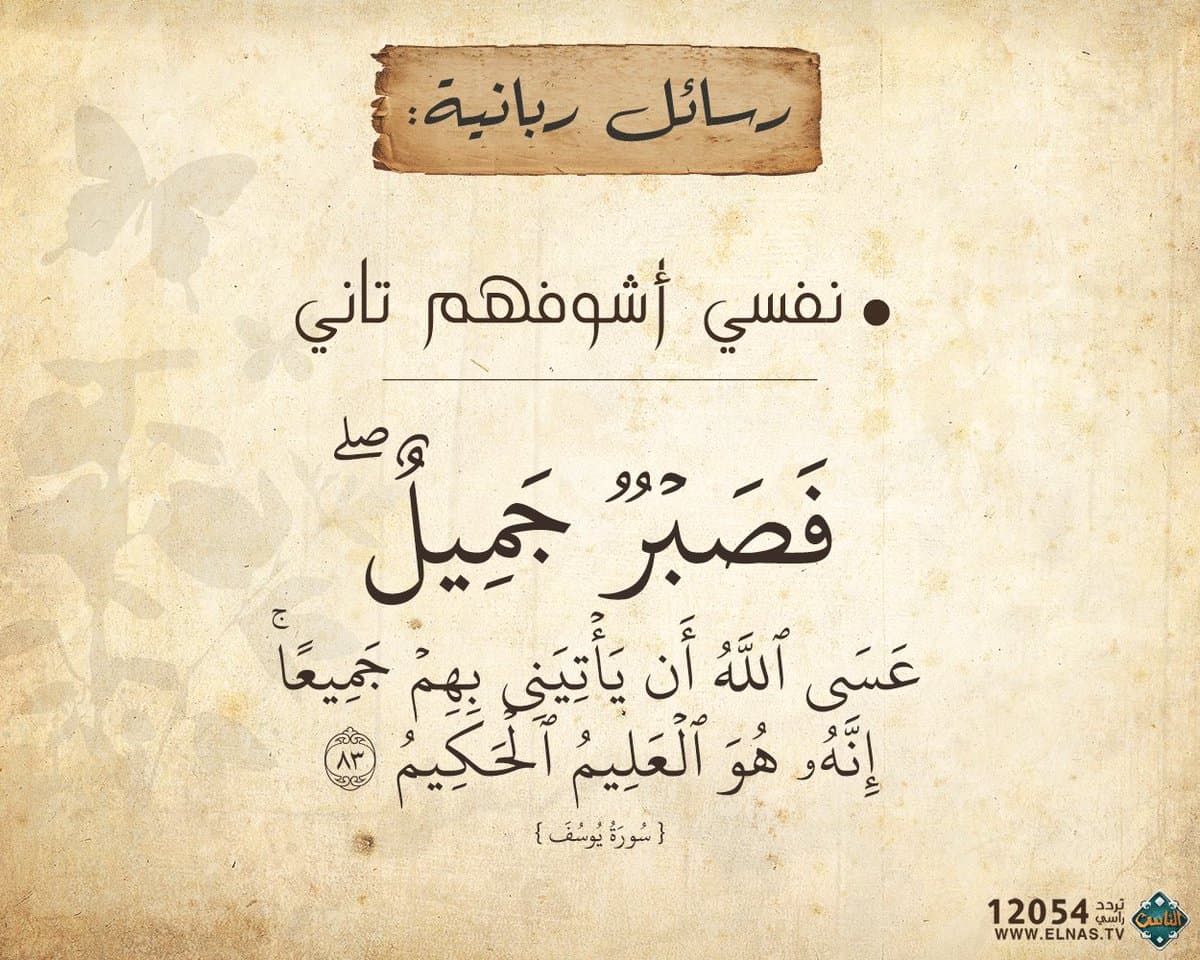 رسائل ربانية:
• نفسي أشوفهم تاني
فَصَبْرٌ جَمِيلٌ ۖ
عَسَى ٱللَّهُ أَن يَأْتِيَنِى بِهِمْ جَمِيعًا ۚ
إِنَّهُۥ هُوَ ٱلْعَلِيمُ ٱلْحَكِيمُ ٨٣
{ سُورَةُ يُوسُفَ }
تردد رأسي 12054
WWW.ELNAS.TV
الناس